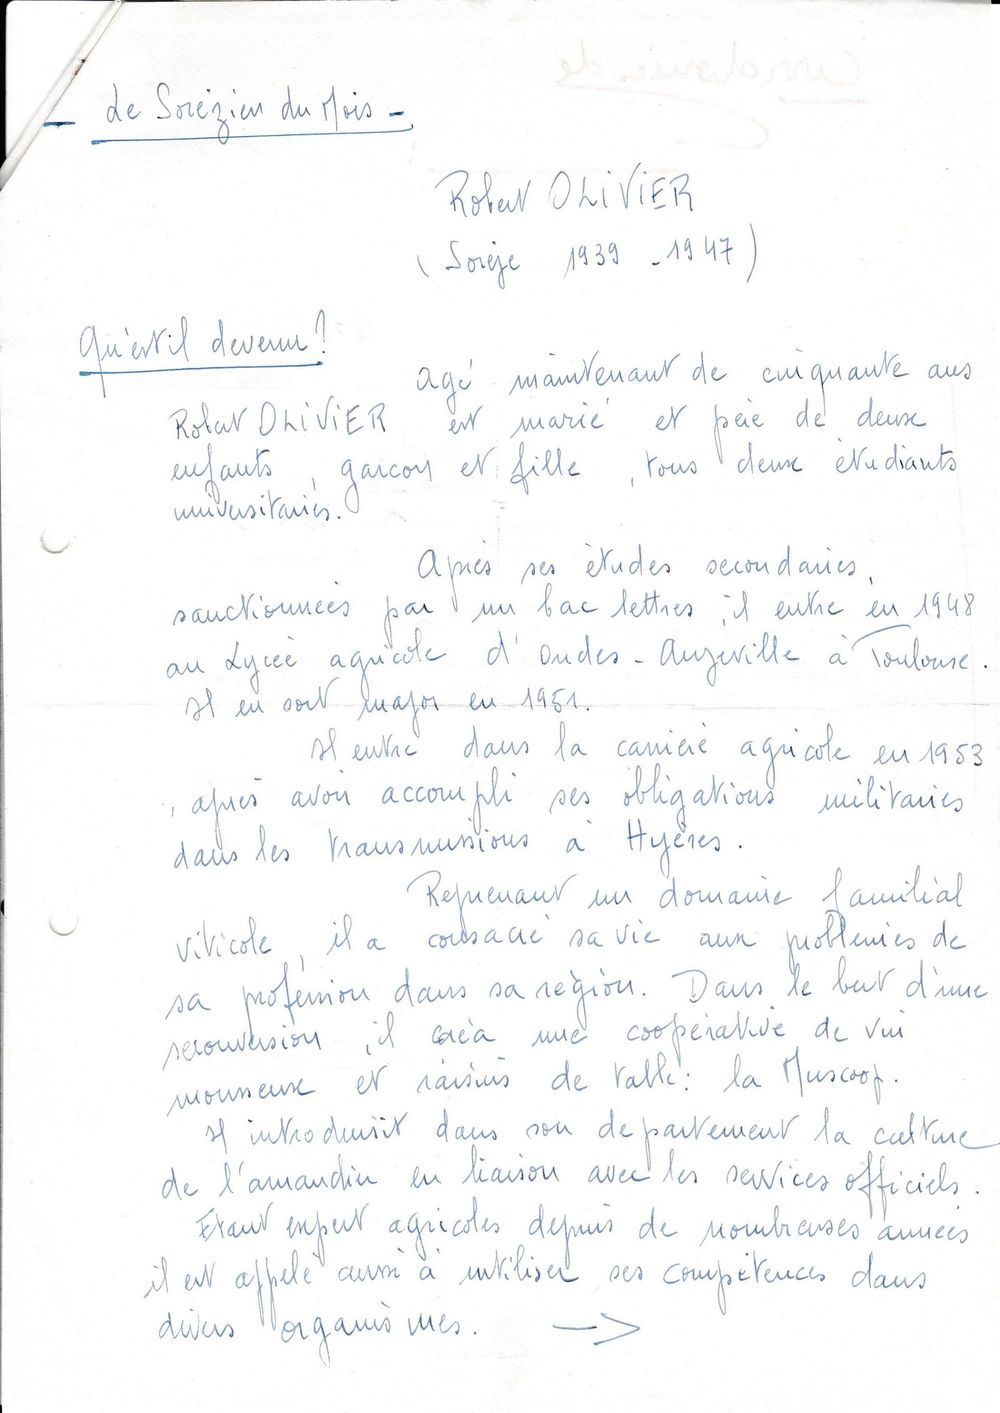 - Le Sorézien du Mois -
Robert OLIVIER
( Sorèze 1939 - 1947 )
Qu'est il devenu ?
Agé maintenant de cinquante ans
Robert OLIVIER est marié et père de deux
enfants, garçon et fille, tous deux étudiants
universitaires.
Après ses études secondaires,
sanctionnées par un bac lettres, il entre en 1948
au Lycée agricole d'Ondes - Auzeville à Toulouse.
Il en sort major en 1951.
Il entre dans la carrière agricole en 1953
, après avoir accompli ses obligations militaires
dans les transmissions à Hyères.
Reprenant un domaine familial
viticole, il a consacré sa vie aux problèmes de
sa profession dans sa région. Dans le but d'une
reconversion, il créa une coopérative de vin
mousseux et raisins de table : la Muscoop.
Il introduisit dans son département la culture
de l'amandier en liaison avec les services officiels.
Etant expert agricoles depuis de nombreuses années
il est appelé aussi à utiliser ses compétences dans
divers organismes. →